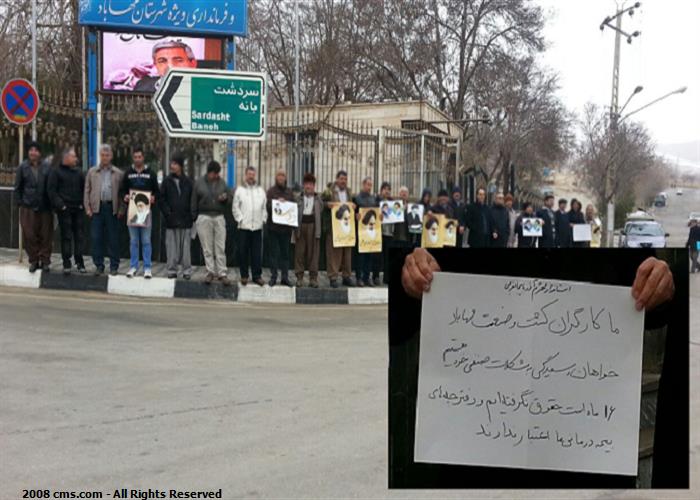 و فرمانداری ویژه شهرستان مهاباد
سردشت
بانه
Sardasht
Baneh
استاندار محترم آذربایجانغربی
ما کارگران کشت و صنعت مهاباد
خواهان رسیدگی به مشکلات صنفی خود هستیم
۱۶ ماه است حقوق نگرفته‌ایم و دفترچه‌های
بیمه درمانی ما اعتبار ندارند
2008 cms.com - All Rights Reserved